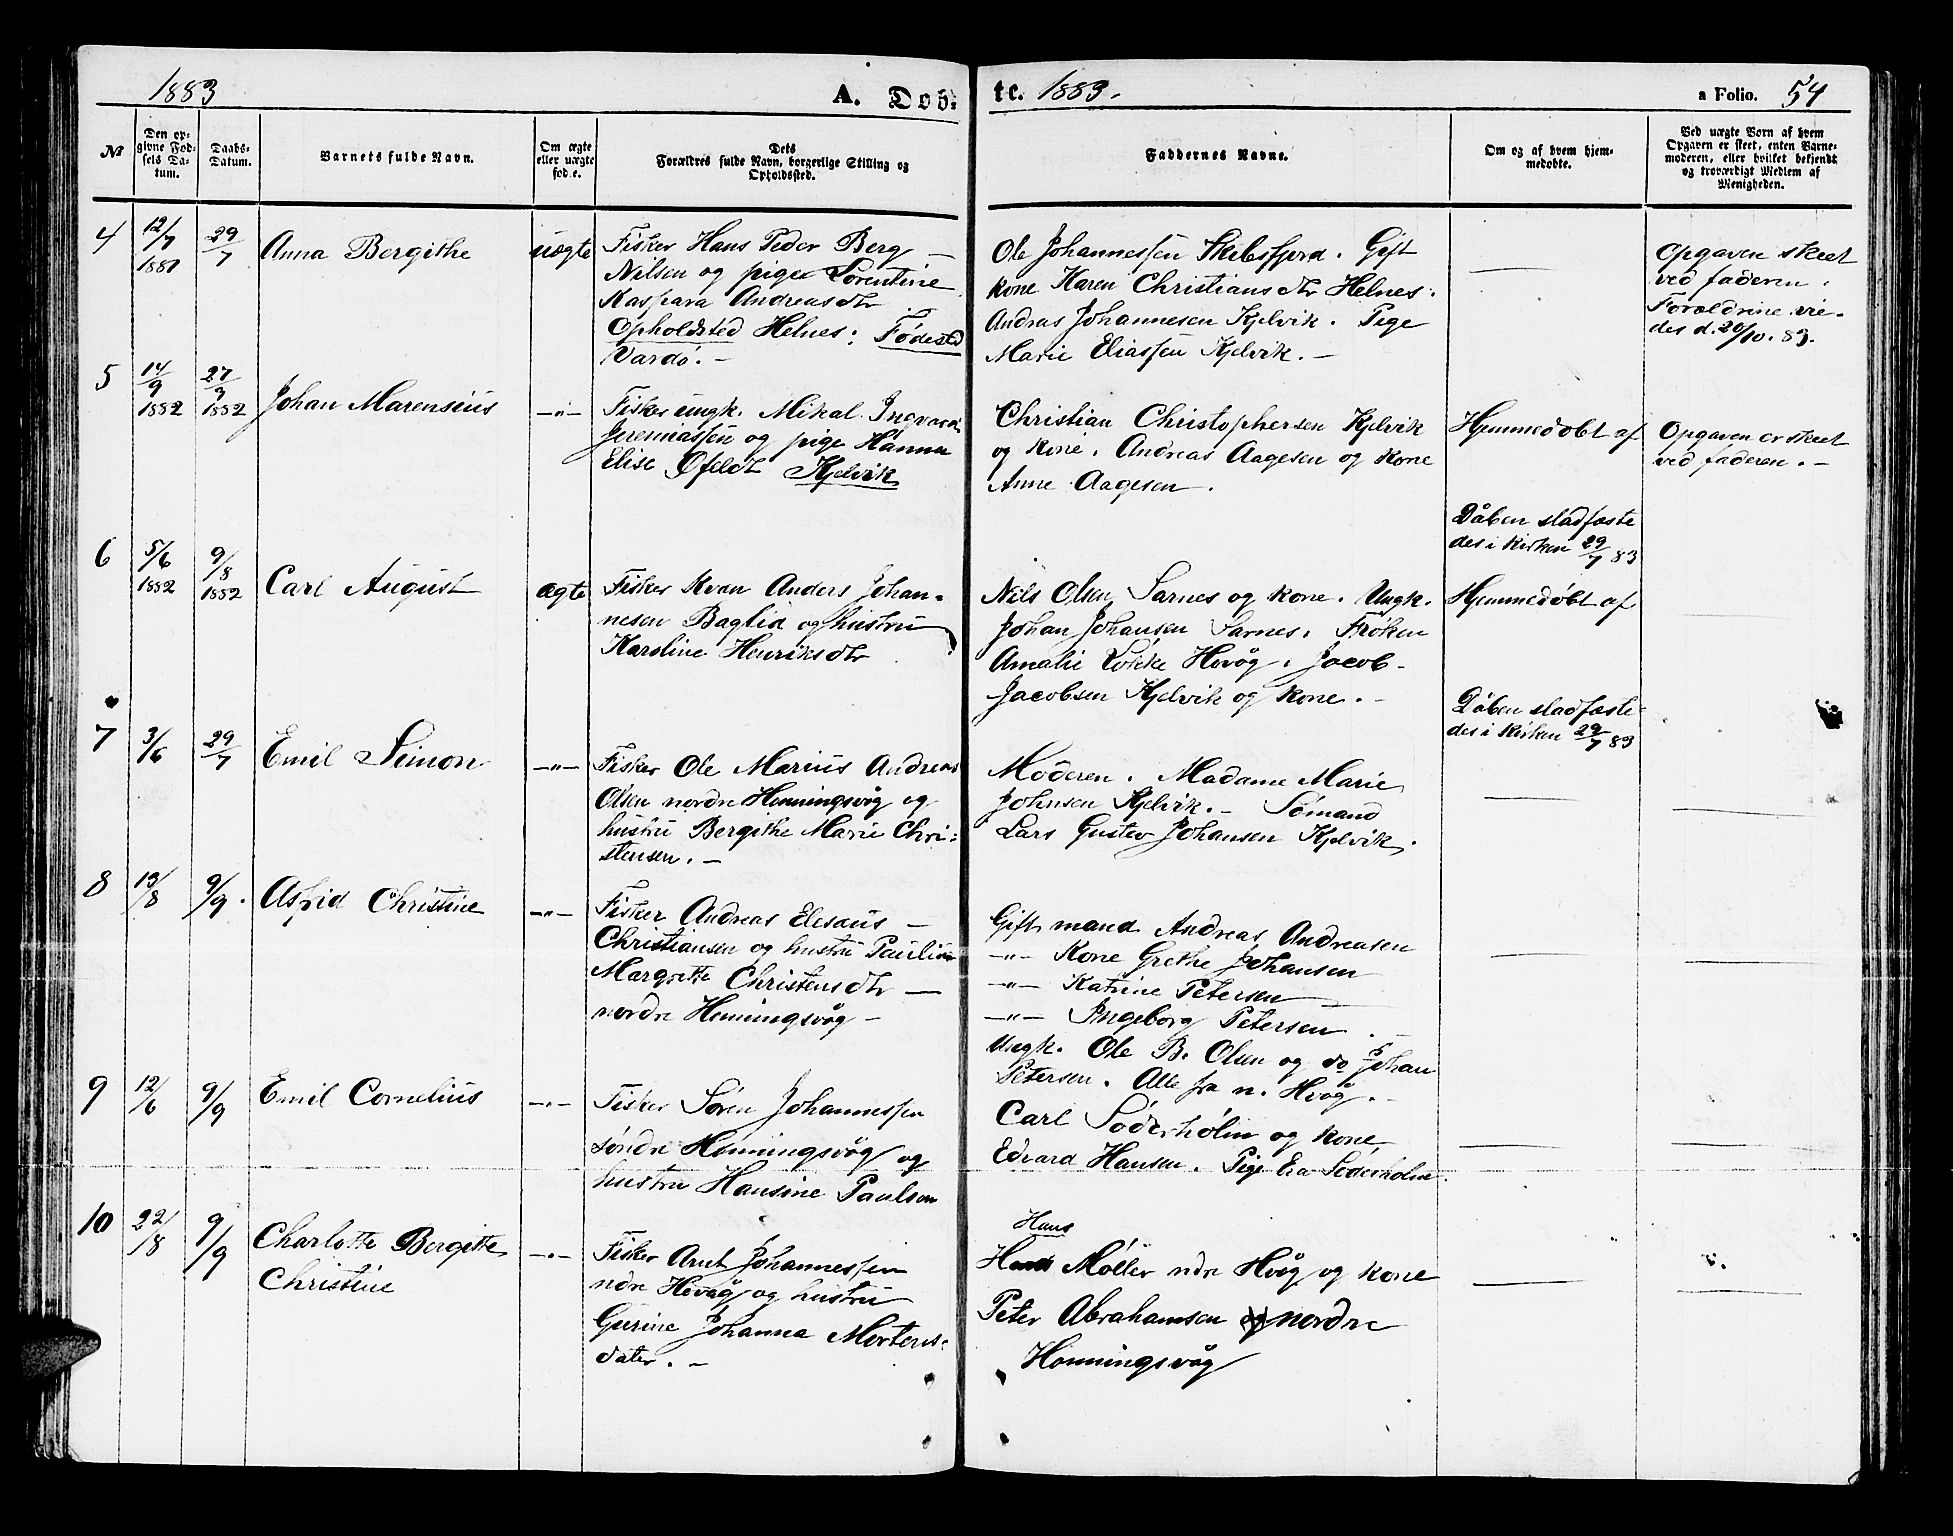 1883
A. Døb-
te. 1883.
a Folio. 54
№
Den op-
givne Fød-
sels Da-
tum.
Daabs-
Datum.
Barnets fulde Navn.
Om ægte
eller uægte
fød.e.
Dets
Forældres fulde Navn, borgerlige Stilling og
Opholdssted.
Faddernes Navne.
Om og af hvem hjem-
medøbte.
Ved uægte Born af hvem
Opgaven er skeet, enten Barne-
moderen, eller hvilket bekjendt
og troværdigt Medlem af
Menigheden.
4
12/7
1881
29/7
Anna Bergithe
uægte
Fisker Hans Peder Berg –
Nilsen og pige Lorentine
Kaspara Andreasdtr
Opholdsted Helnes; Fødested
Vardö. –
Ole Johannessen Skibsfjord. Gift
kone Karen Christiansdtr Helnes.
Andras Johannesen Kjelvik. Pige
Marie Eliassen Kjelvik. –
Opgaven skeet
ved faderen.
Foroldrine vie-
des d. 20/10. 83.
5
14/9
1882
27/9
1882
Johan Marensius
–"–
Fisker ungk. Mikal Ingvard
Jeremiassen og pige Hanna
Elise Ofeldt Kjelvik
Christian Christophersen Kjelvik
og kone. Andreas Aagesen og kone
Anne Aagesen.
Hjemmedöbt af
Dåben stadfæste
des i kirken 29/7 83
Opgaven er skeet
ved faderen. –
6
5/6
1882
9/8
1882
Carl August
ægte
Fisker Kvæn Anders Johan-
nesen Bagtid og hustru
Karoline Henriksdtr
Nils Olsen Sarnes og kone. Ungk.
Johan Johansen Sarnes. Frøken
Amalie Løkke Hvåg. Jacob
Jacobsen Kjelvik og kone. –
Hjemmedöbt af
Dåben stadfæste-
des i kirken 29/7 83
7
3/6
29/7
Emil Simon
–"–
Fisker Ole Marius Andreas
Olsen nordre Honningsvåg og
hustru Bergithe Marie Chri-
stensen. –
Moderen. Madame Marie
Johnsen Kjelvik. – Sömand
Lars Gustav Johansen Kjelvik.
8
13/8
9/9.
Astrid Christine
–"–
Fisker Andreas Elesæus –
Christiansen og hustru Pauline
Margrette Christensdtr –
nordre Honningsvåg –
Gift mand Andreas Andreasen
–"– Kone Grethe Johansen
–"– Katrine Petersen
–"– Ingeborg Petersen. –
Ungk. Ole B. Olsen og do Johan
Petersen. Alle fra n. Hvåg. –
9
12/6
9/9
Emil Cornelius
–"–
Fisker Søren Johannessen
söndre Honningsvåg og
hustru Hansine Paulsen
Carl Söderholm og kone
Edvard Hansen. Pige Eva Söderholm.
10
22/8
9/9
Charlotte Bergitte
Christine
–"–
Fisker Arnt Johannessen
ndre Hvåg og hustru
Gurine Johanna Mortens-
dater. –
Hans
Møller ndre Hvåg og kone
Peter Abrahamsen nordre
Honningsvåg